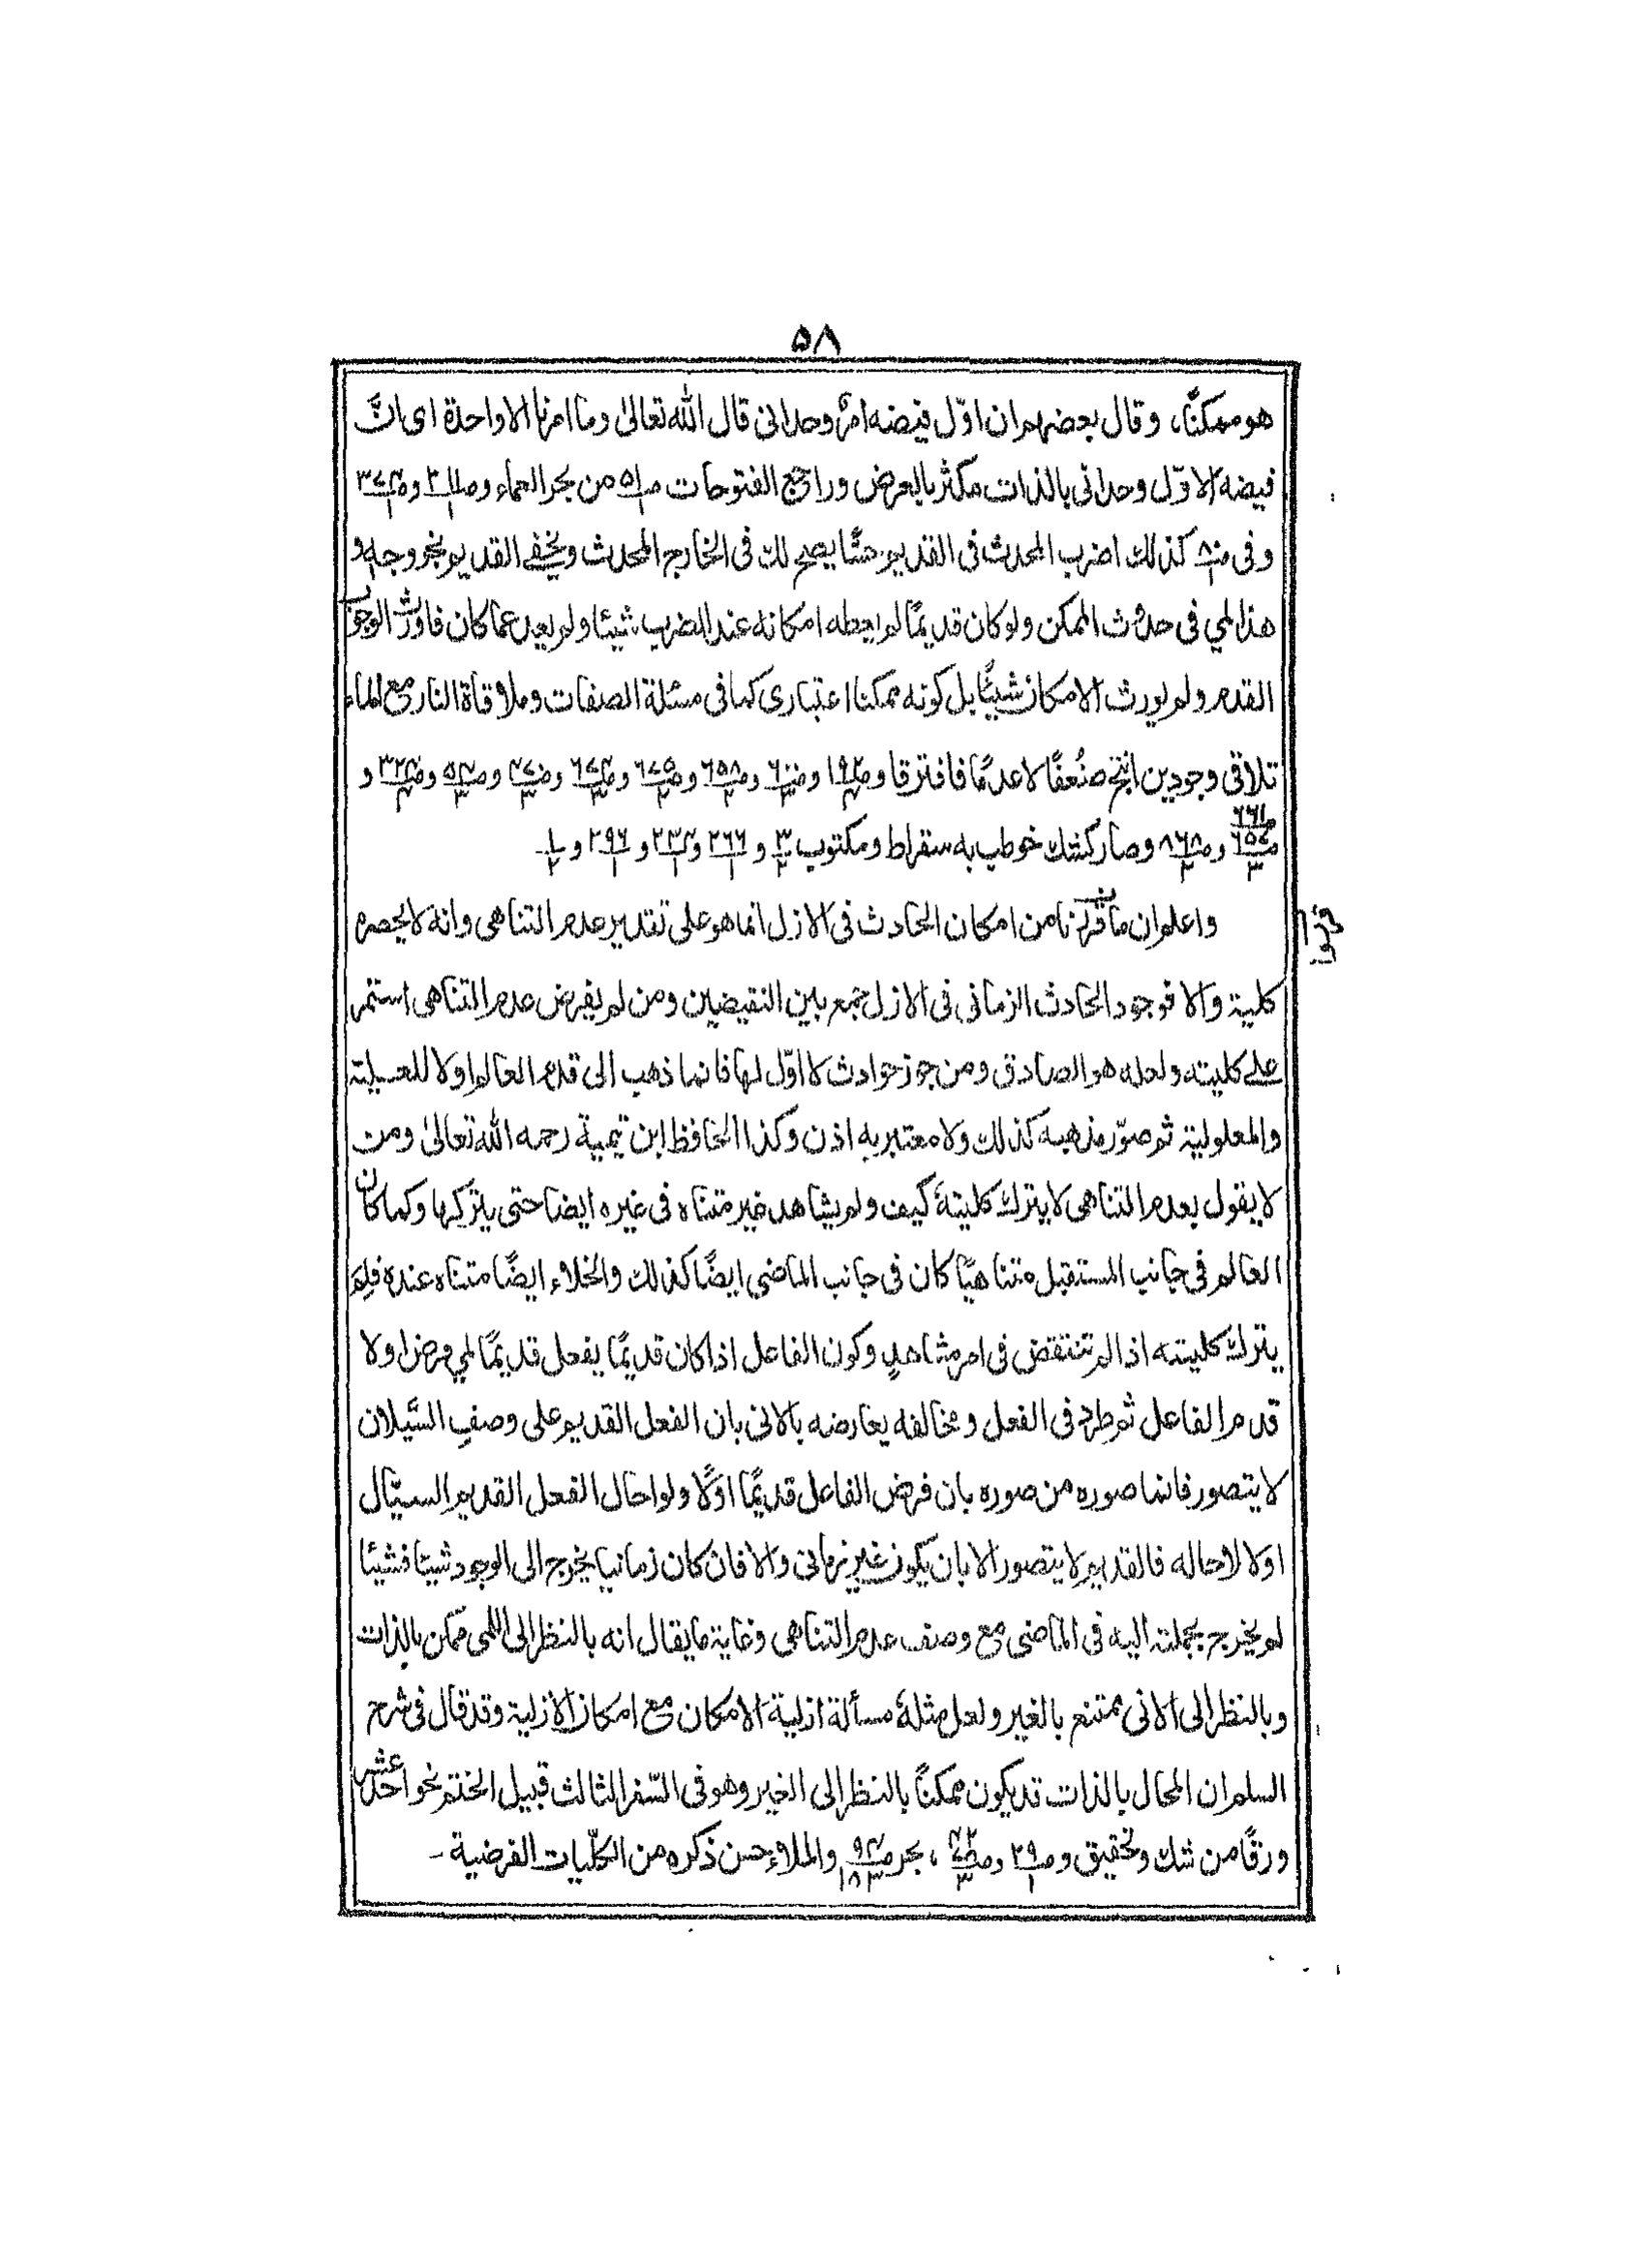 ٥٨
هو ممكنًا، وقال بعضهم ان اوّل فيضه امرٌ وحدانى قال الله تعالىٰ وما امرنا الا واحدة اى انَّ
فيضه الاوّل وحدانى بالذات متكثر بالعرض وراجع الفتوحات ص٥١/١ من بحر العماء وص٢١١/١ وص٣٧٤/١
وفى ص٨/١ كذلك اضرب المحدث فى القديم حسًّا يصح لك فى الخارج المحدث ويخفى القديم بخروجه و
هذا لمي فى حدوث الممكن ولو كان قديمًا لم يعطه امكانه عند الضرب شيئا ولم يعد عما كان فاورث الوجوب
القدم ولم يورث الامكان شيئًا بل كونه ممكنا اعتبارى كما فى مسئلة الصفات وملاقاة النار مع الماء
تلاقى وجودين انتج ضُعفًا لا عدمًا فافترقا وص١٩٢/٤ وص٦٠/٣ وص٦٥٨/٢ وص٦٧٥/٢ وص٦٧٤/٣ وص٤٧/٣ وص٥٤/٣ وص٣٢٤/٤ و
ص٦٦١ ص٦٥٤/٣ وص٨٦٨/٢ وصار كشك خوطب به سقراط ومكتوب ٣/٣ و ٢٦٦/١ و٢٣٤/١ و ٢٩٦/١ و ١/٢-
واعلم ان ما قررنا من امكان الحادث فى الازل انما هو على تقدير عدم التناهى وانه لا يحصره
كلية والا فوجود الحادث الزمانى فى الازل جمع بين النقيضين ومن لم يفرض عدم التناهى استمر
على كليته ولعله هو الصادق ومن جوز حوادث لا اوّل لها فانما ذهب الى قدم العالم اولا للعلية
والمعلولية ثم صوّر مذهبه كذلك ولا معتبر به اذن وكذا الحافظ ابن تيمية رحمه الله تعالىٰ ومن
لا يقول بعدم التناهى لا يترك كليتهٗ كيف ولم يشاهد غير متناه فى غيره ايضا حتى يتركها وكما كان
العالم فى جانب المستقبل متناهيًا كان فى جانب الماضي ايضًا كذلك والخلاء ايضًا متناه عنده فلِمَ
يترك كليته اذا لم تنتقض فى امر مشاهدٍ وكون الفاعل اذا كان قديمًا يفعل قديمًا لمي فرض اولا
قدم الفاعل ثم طرد فى الفعل ومخالفه يعارضه بالانى بان الفعل القديم على وصفِ السَّيلان
لا يتصور فانما صوره من صوره بان فرض الفاعل قديمًا اوّلًا ولو احال الفعل القديم السيّال
اولا لاحاله فالقديم لا يتصور الا بان يكون غير زمانى والا فان كان زمانيا يخرج الى الوجود شيئا فشيئا
لم يخرج بجملته اليه فى الماضى مع وصف عدم التناهى وغاية ما يقال انه بالنظر الى اللمى ممكن بالذات
وبالنظر الى الانى ممتنع بالغير ولعل مثلهٗ مسألة ازلية الامكان مع امكان الازلية وقد قال فى شرح
السلم ان المحال بالذات قد يكون ممكنًا بالنظر الى الغير وهو فى السّفر الثالث قبيل الختم نحو احد عشر
ورقًا من شك وتحقيق وص٢٩/١ وص٤٢/٣ ، بحر ص٩٤/١٨٣ والملاء حسن ذكره من الكلّيات الفرضية -